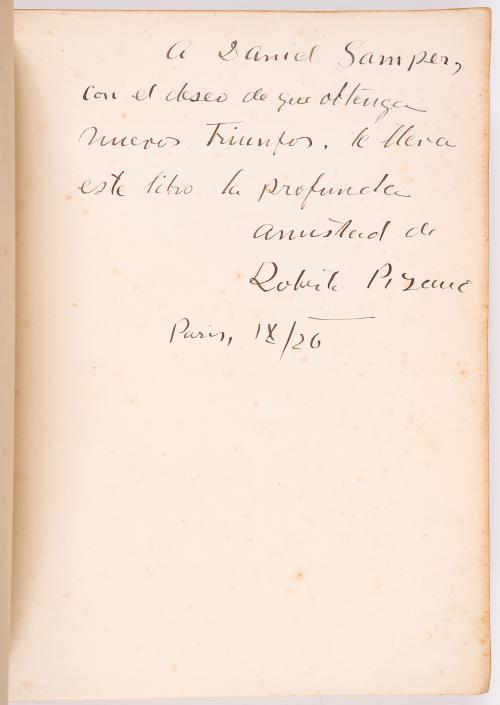 A Daniel Samper,
con el deseo de que obtenga
nuevos triunfos, le lleva
este libro la profunda
amistad de
Roberto Pizano
Paris, IX/26